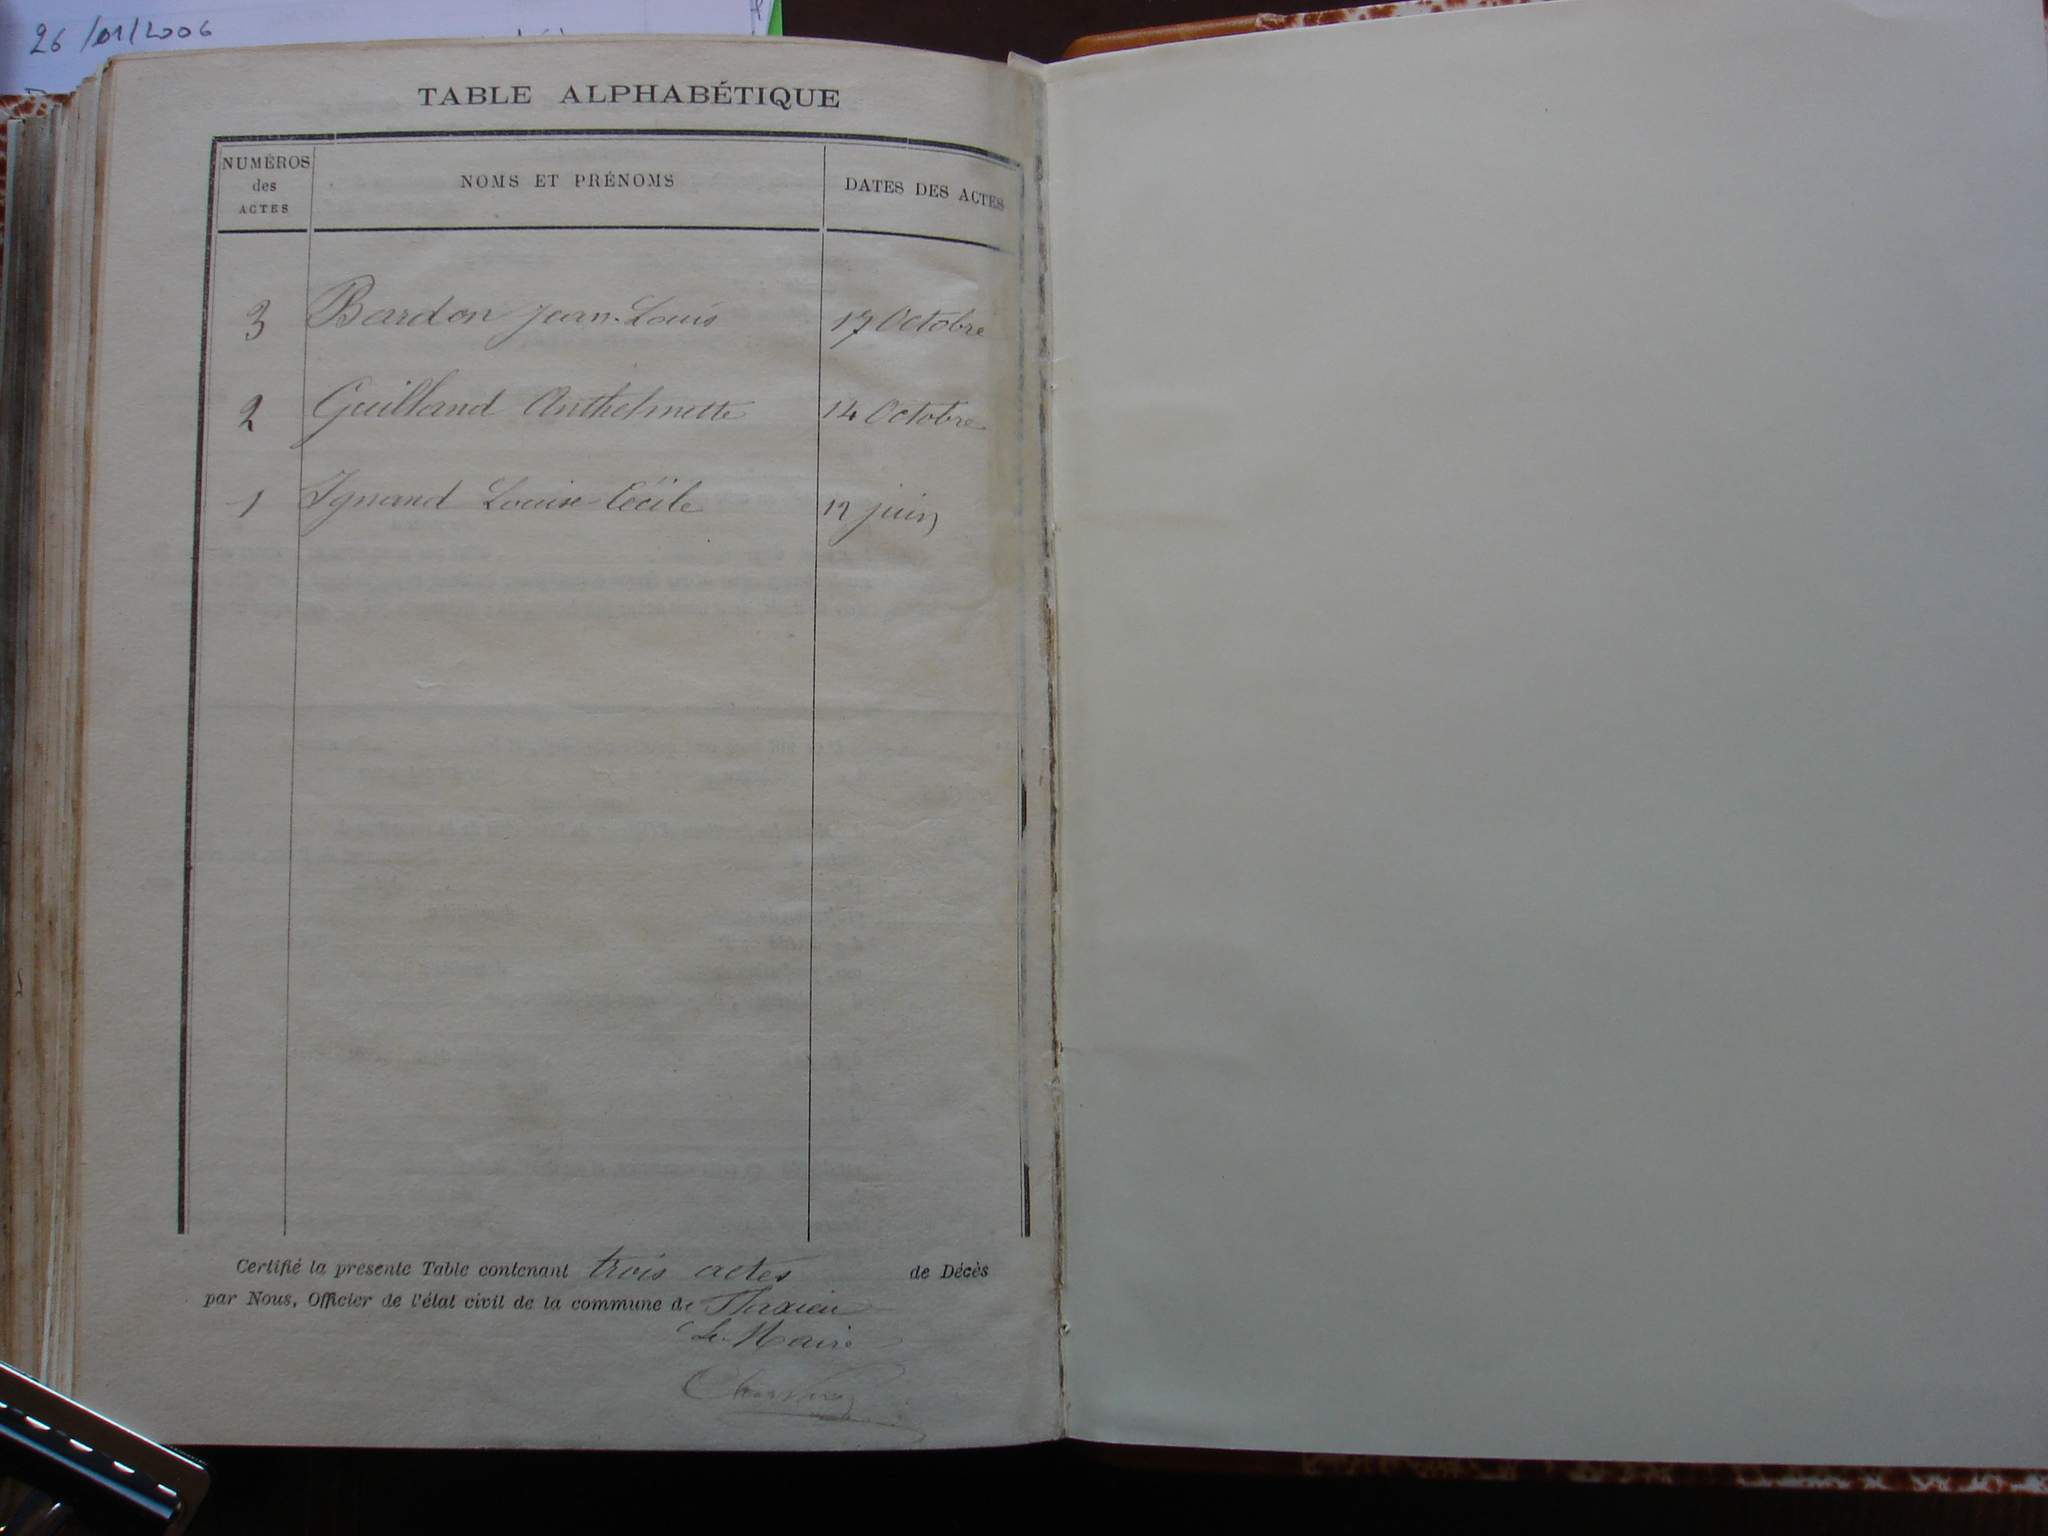 26/01/2006
TABLE ALPHABÉTIQUE
NUMÉROS des ACTES
NOMS ET PRÉNOMS
DATES DES ACTES
3 Bardon Jean-Louis 17 Octobre
2 Guilland Anthelmette 14 Octobre
1 Ignand Louise-Cécile 12 juin
Certifié la présente Table contenant trois actes de Décès
par Nous, Officier de l'état civil de la commune de Flaxieu
Le Maire